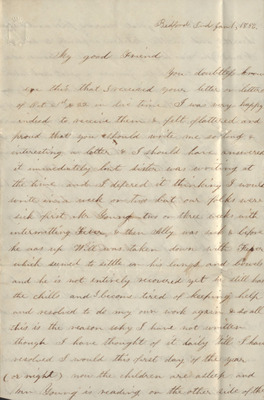 Bedford Inda Jan 1, 1852.
My good Friend
You doubtless know
ere this that I received your letter or letters
of Oct. & in due time I was very happy
indeed to receive them & felt flattered and
proud that you should write me so long &
interesting a letter & I should have answered
it immediately but sister was working at
the time and I defered it thinking I would
write in a week or two but our folks were
sick first Mr Young two or three weeks with
intermitting Fever & then Ally was sick & before
he was up Will was taken down with Fever
which seemed to settle in his lungs and bowels
and he is not entirely recovered yet he still has
the chills and I became tired of keeping help
and resolved to do my own work again & so all
this is the reason why I have not written
though I have thought of it daily till I have
resolved I would this first day of the year
(or night) now the children are asleep and
Young is reading on the other side of the